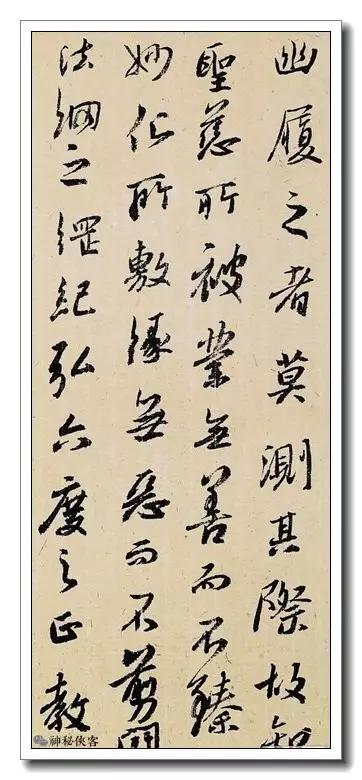 幽履之者莫測其際故知
聖慈所被業无善而不臻
妙化所敷緣無惡而不剪開
法網之綱紀弘六度之正教
神秘俠客